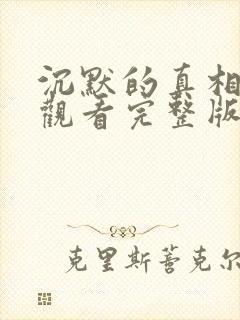 沉默的真相
觀看完整版
克里斯蒈克尔